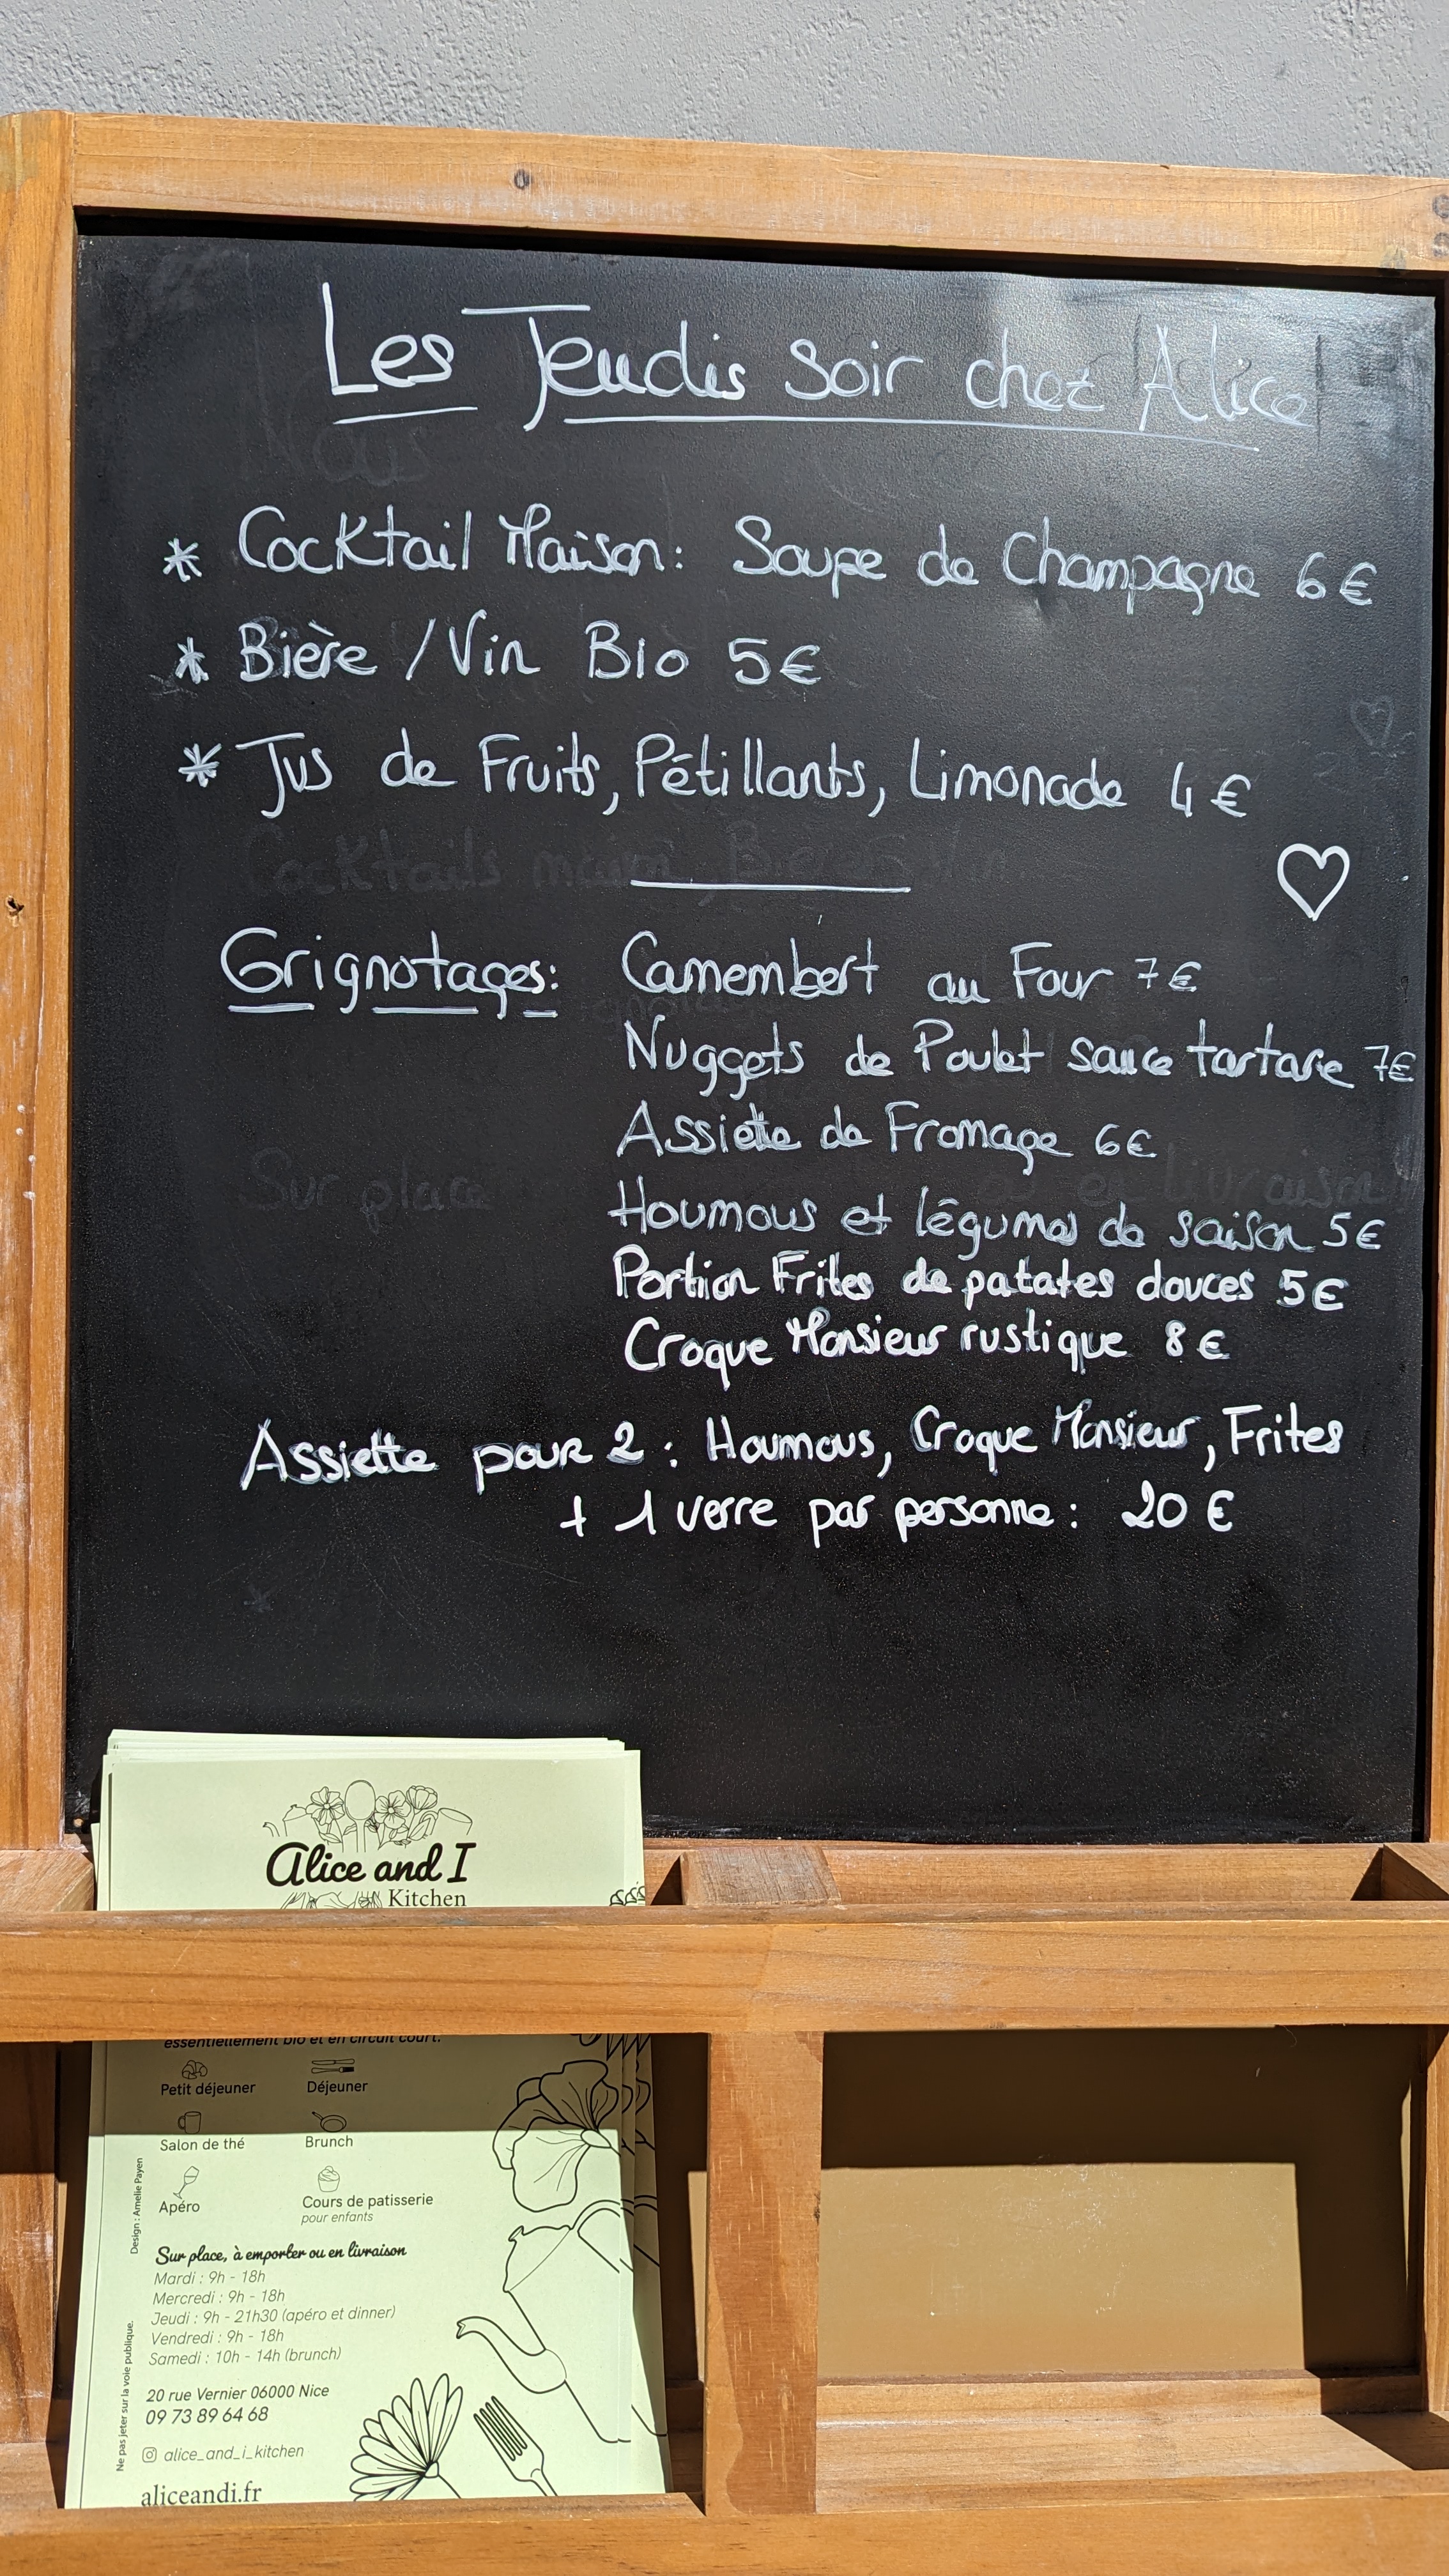 Les Jeudis Soir chez Alice
* Cocktail Maison: Soupe de Champagne 6€
* Bière / Vin BIO 5€
* Jus de Fruits, Pétillants, Limonade 4€
Cocktails
Grignotages: Camembert au Four 7€
Nuggets de Poulet sauce tartare 7€
Assiette de Fromage 6€
Sur place en livraison
Houmous et légumes de saison 5€
Portion Frites de patates douces 5€
Croque Monsieur rustique 8€
Assiette pour 2 : Houmous, Croque Monsieur, Frites
+ 1 verre par personne : 20 €
Alice and I
Kitchen
essentiellement bio et en circuit court.
Petit déjeuner
Déjeuner
Salon de thé
Brunch
Apéro
Cours de patisserie
pour enfants
Sur place, à emporter ou en livraison
Mardi : 9h - 18h
Mercredi : 9h - 18h
Jeudi : 9h - 21h30 (apéro et dinner)
Vendredi : 9h - 18h
Samedi : 10h - 14h (brunch)
20 rue Vernier 06000 Nice
09 73 89 64 68
alice_and_i_kitchen
aliceandi.fr
Design : Amelie Payen
Ne pas jeter sur la voie publique.